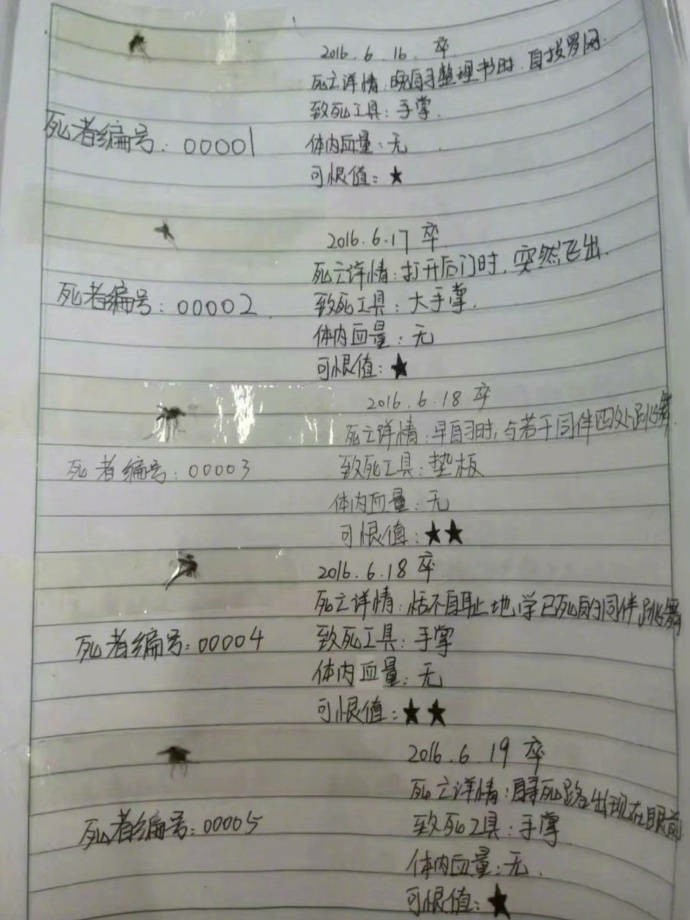 2016.6.16.卒
死亡详情：晚自习整理书时，自投罗网.
致死工具：手掌.
死者编号：00001
体内血量：无
可恨值：★
2016.6.17 卒
死亡详情：打开后门时，突然飞出.
死者编号：00002.
致死工具：大手掌.
体内血量：无
可恨值：★
2016.6.18 卒
死亡详情：早自习时，与若干同伴四处跳舞
死者编号：00003
致死工具：垫板
体内血量：无
可恨值：★★
2016.6.18 卒
死亡详情：恬不自耻地学已死的同伴跳舞
死者编号：00004
致死工具：手掌
体内血量：无
可恨值：★★
2016.6.19 卒
死亡详情：自寻死路出现在眼前
死者编号：00005
致死工具：手掌
体内血量：无.
可恨值：★